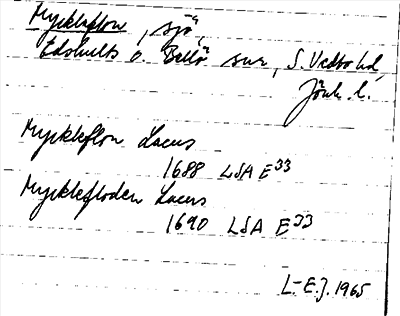 Myckleflon, sjö,
Edshults o. Bellö snr, S. Vedbo hd,
Jönk. l.
Myckleflon Lacus
1688 LSA E33
Mycklefloden Lacus
1690 LSA E33
L-E.J. 1965